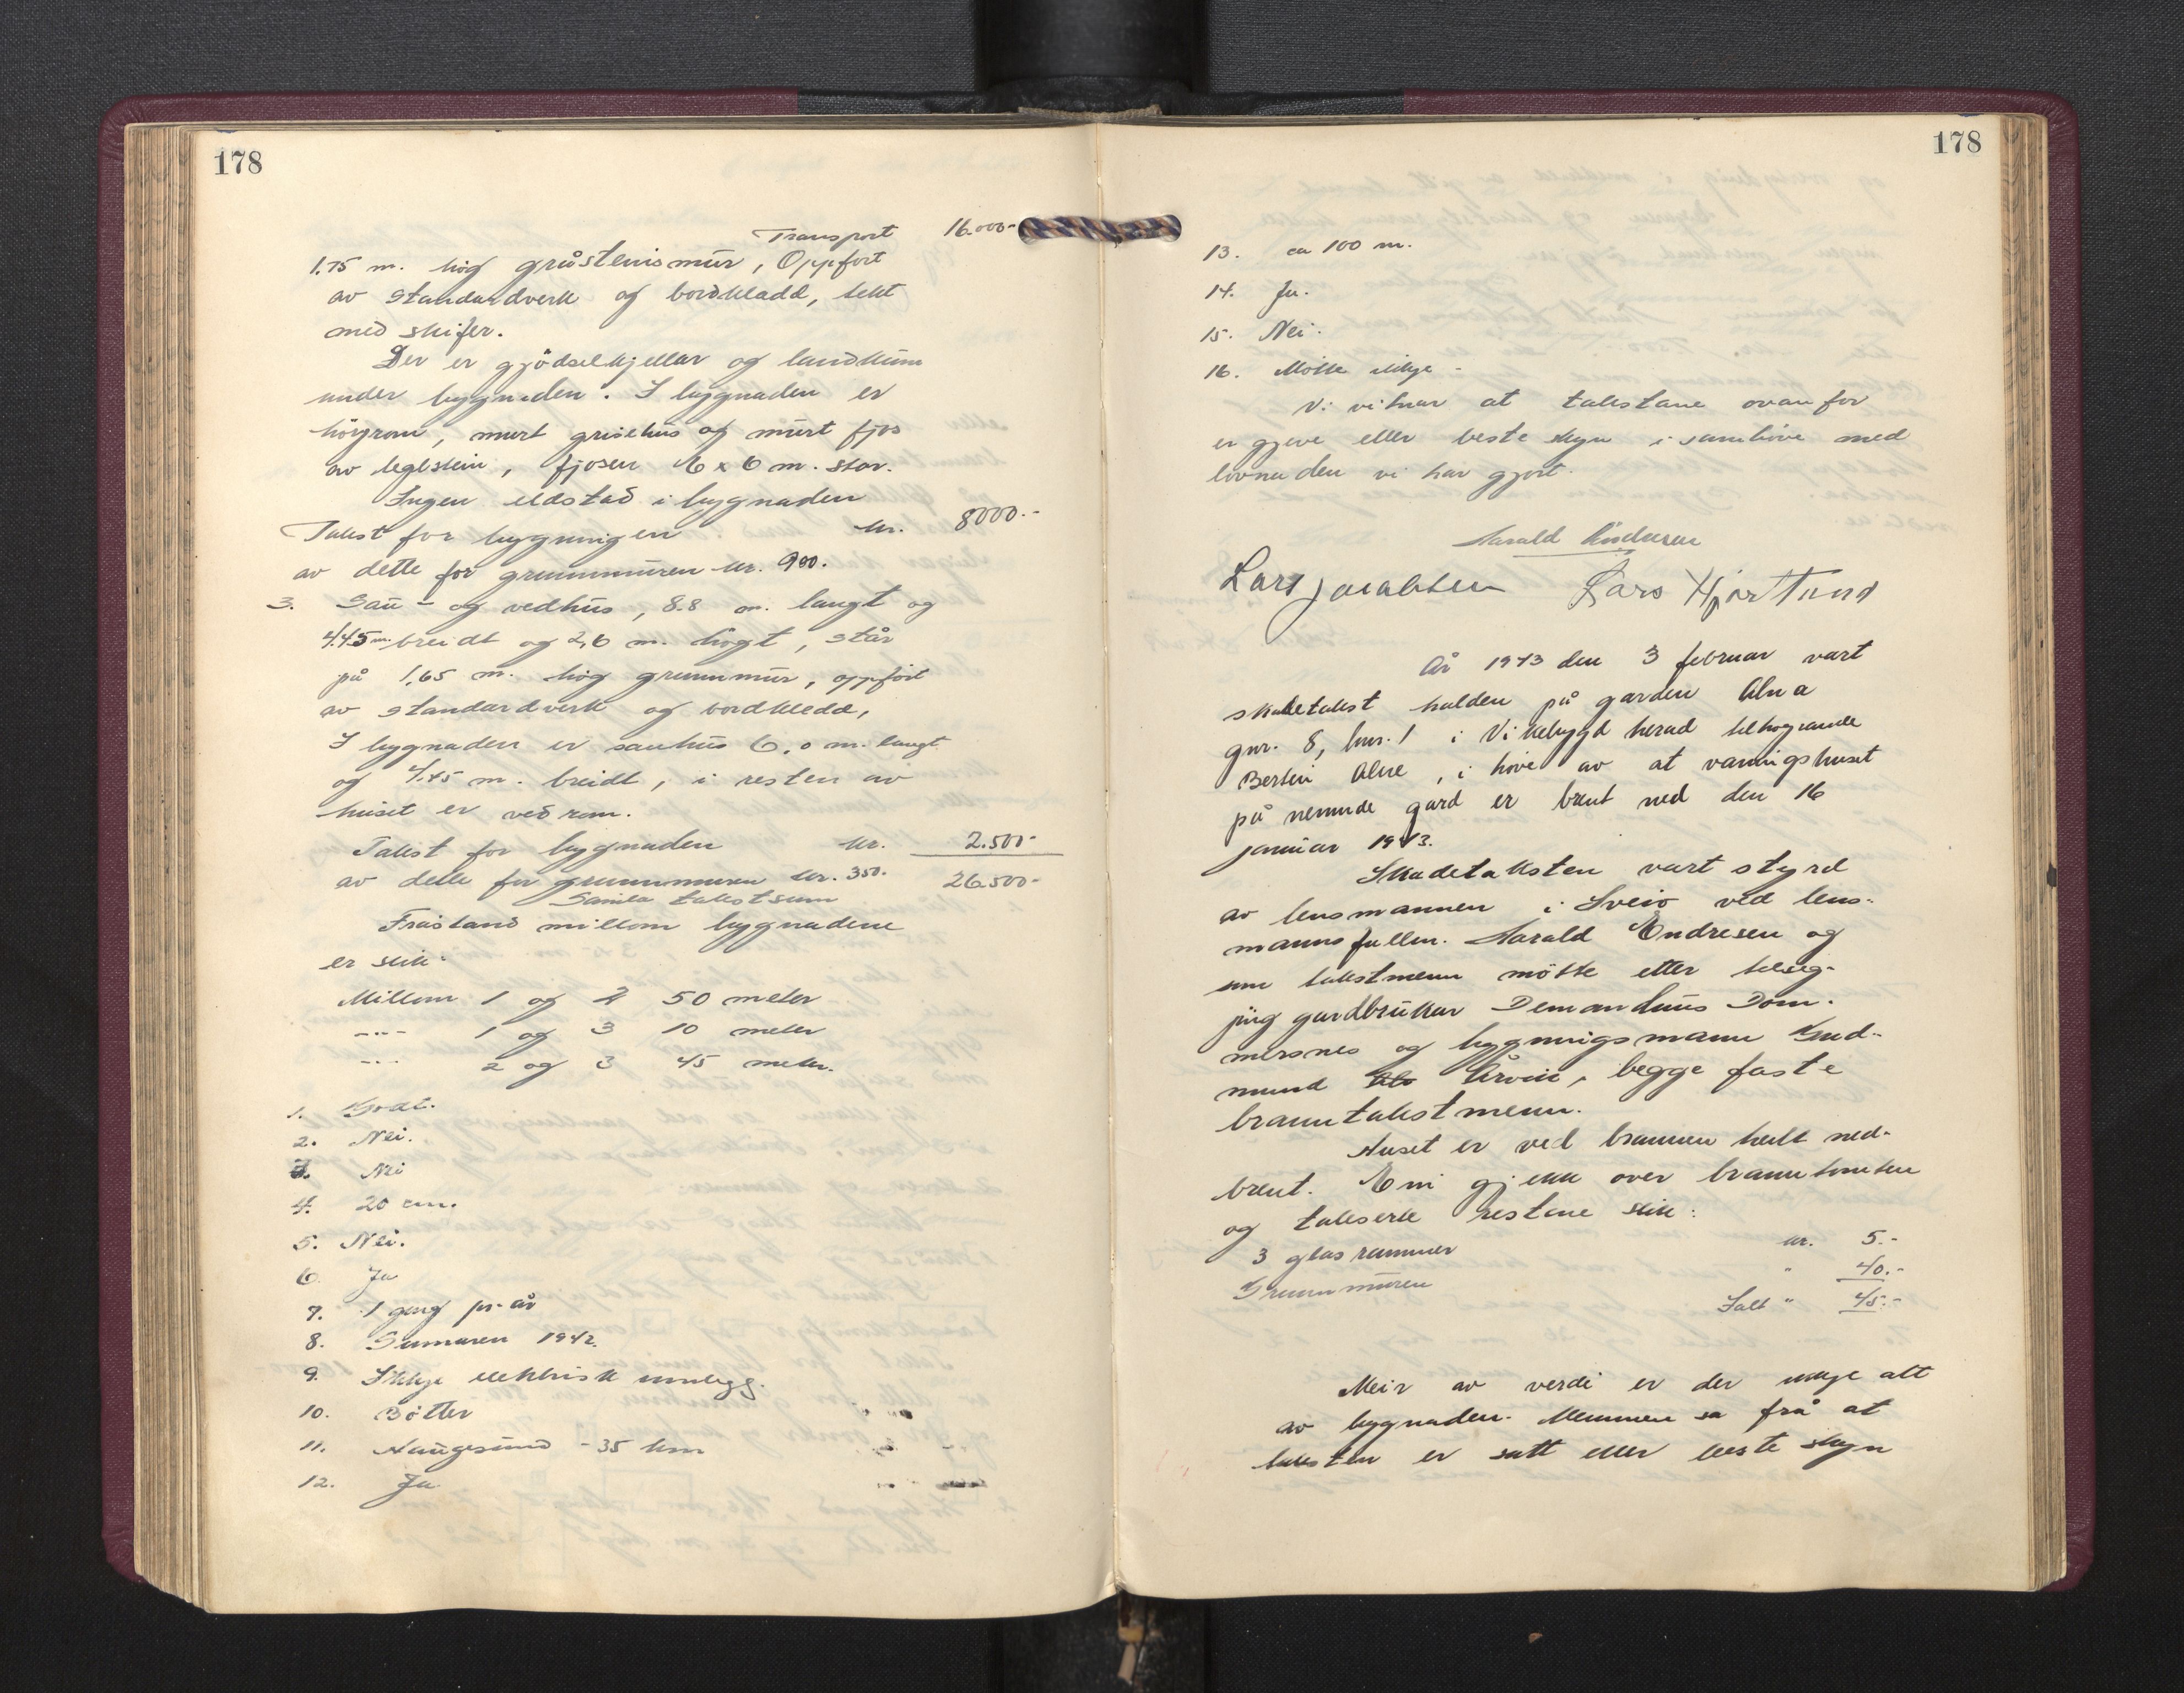 178
Transport 16.000-
1.75 m. høg gråsteinsmur, Oppført
av standardverk og bordkledd, tekt
med skifer.
Der er gjödselkjellar og landkum
under bygnaden. I bygnaden er
höyrom, murt grisehus og murt fjos
av teglstein, fjosen 6 x 6 m. stor.
Ingen eldstad i bygnaden
Takst for bygningen kr. 8000.-
av dette for grunnmuren kr. 900.
3. Sau- og vedhus, 8.8 m. langt og
4.45 m breidt og 2,6 m. högt, står
på 1,65 m. høg grunnmur, oppført
av standardverk og bordkledd,
I bygnaden er sauhus 6,0 m. langt
og 4.45 m. breidt, i resten av
huset er vedrom.
Takst for bygnaden kr. 2.500-
av dette for grunnmuren kr. 350.
Samla takstsum 26.500-
Fråstand millom bygnadene
er slik:
Millom 1 og 2 50 meter
--- 1 og 3 10 meter
--- 2 og 3 45 meter.
1. Godt.
2. Nei.
3. Nei
4. 20 cm.
5. Nei.
6. Ja
7. 1 gong pr. år
8. Sumaren 1942.
9. Ikkje elektrisk innlegg.
10. Bötter
11. Haugesund - 35 km
12. Ja
178
13. ca 100 m.
14. Ja.
15. Nei.
16. Mötte ikkje -
Vi vitnar at takstane ovanfor
er gjeve etter beste skyn i samhöve med
lovnaden vi har gjort.
Harald Endresen
Lars Jacobsen Lars Hjartland
År 1943 den 3 februar vart
skadetakst halden på garden Alna
gnr. 8, bnr. 1 i Vikebygd herad tilhøyrande
Bertin Alne, i höve av at vaaningshuset
på nemnde gard er brent ned den 16
januar 1943.
Skadetaksten vart styrd
av lensmannen i Sveio ved lens-
mannsfullm. Harald Endresen og
som takstmenn mötte etter tilseg-
jing gardbrukar Demandius Dom-
mersnes og bygningsmann Gud-
mund Årvik, begge faste
branntakstmenn.
Huset er ved brannen heilt ned-
brent. Ein gjekk over branntomten
og takserte restane slik:
3 glas rammer kr. 5.-
Grunnmuren " 40.-
Ialt " 45.-
Meir av verdi er der ikkje att
av bygnaden. Mennene sa frå at
taksten er sett etter beste skyn